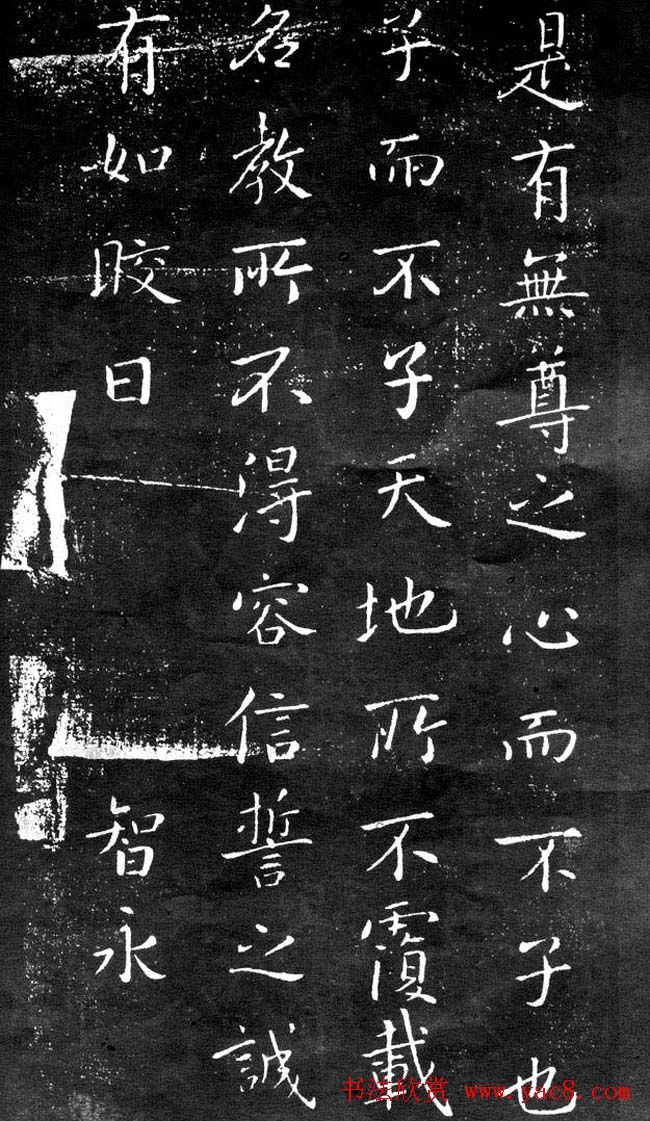 是有無尊之心而不子也
子而不子天地所不覆載
名教所不得容信誓之誠
有如皎日 智永
书法欣赏 www.yac8.com